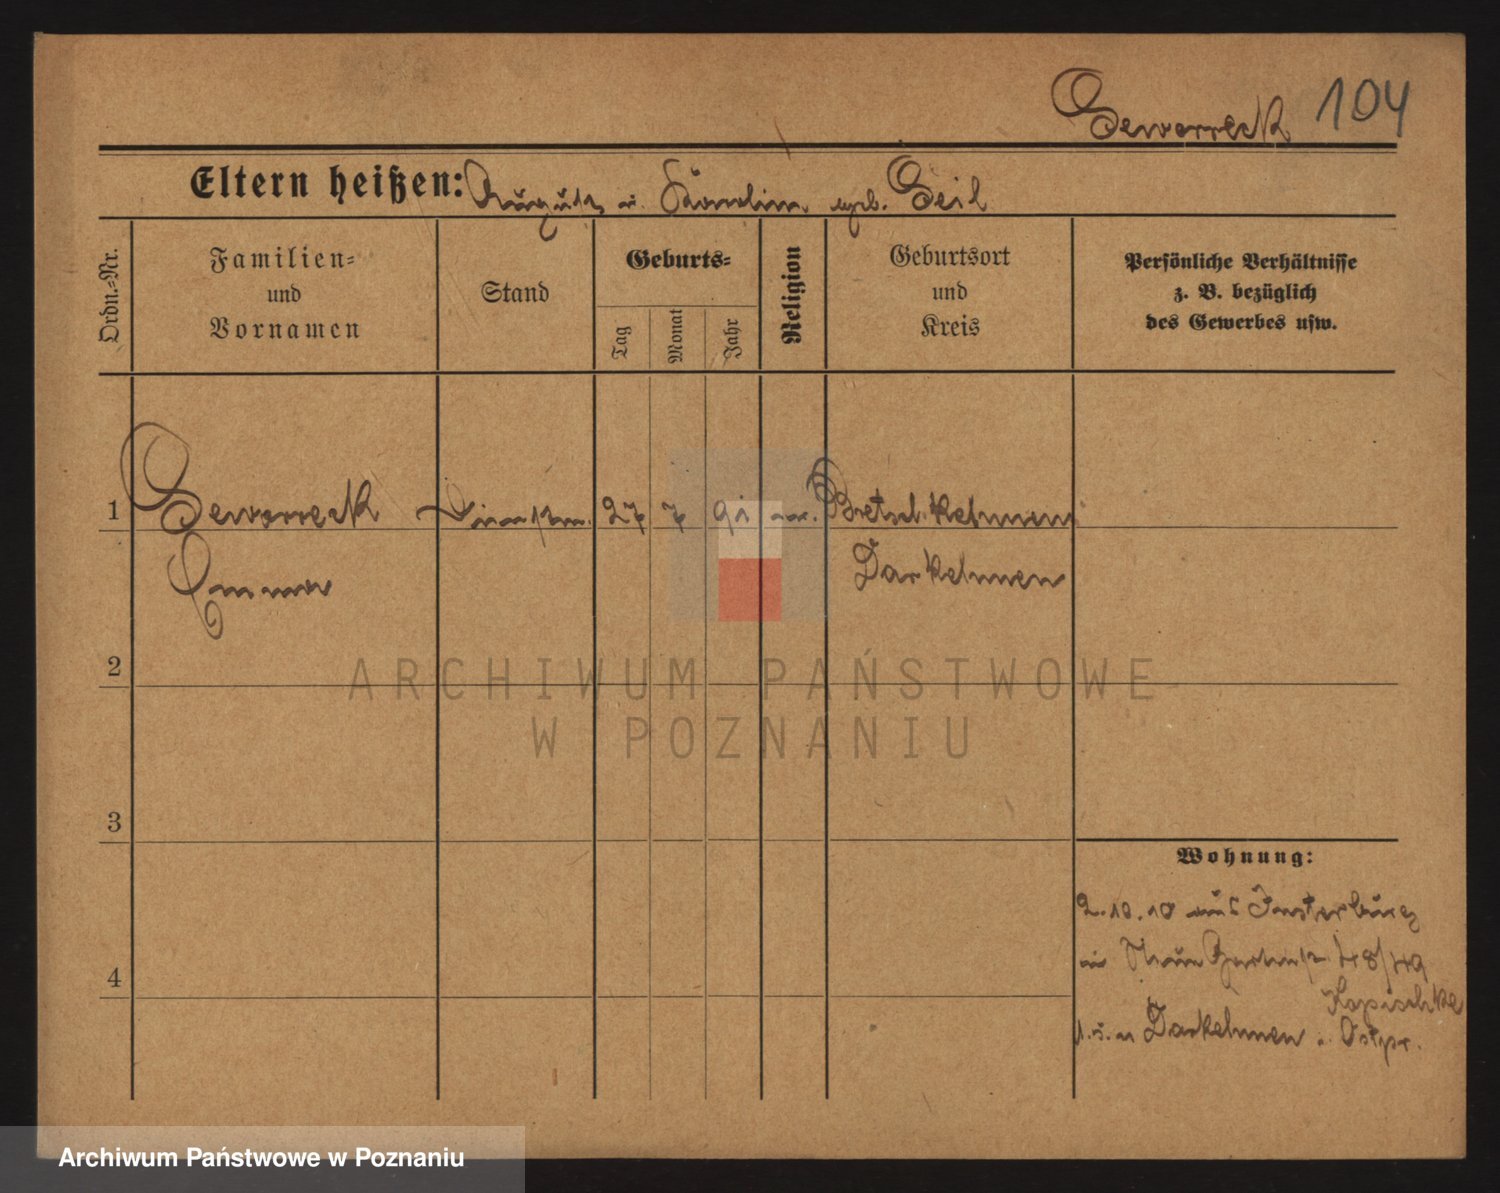 Geworreck 104
Eltern heißen: August u. Karoline geb. Geil
Ordn.-Nr.
Familien-
und
Vornamen
Stand
Geburts-
Tag
Monat
Jahr
Religion
Geburtsort
und
Kreis
Persönliche Verhältnisse
z. B. bezüglich
des Gewerbes usw.
1 Geworreck 27 7 91 ev. kehmen
Emma Darkehmen
2
3
4
Wohnung:
2.10.10 aus Insterburg
48/49
Kopischke
Darkehmen Ostpr.
ARCHIWUM PAŃSTWOWE
W POZNANIU
Archiwum Państwowe w Poznaniu